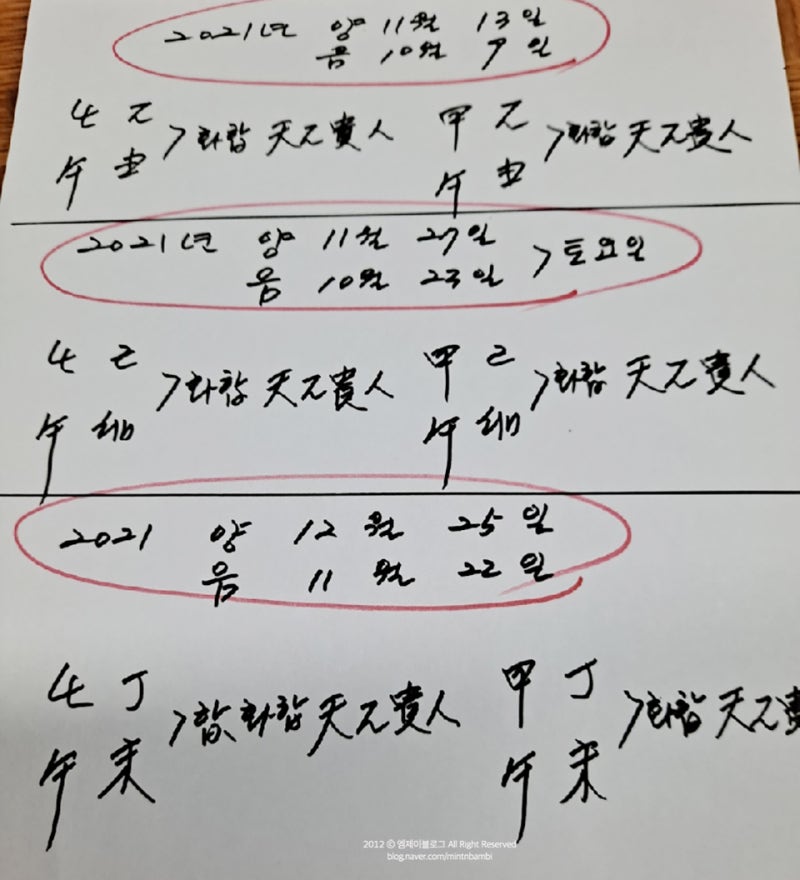 2021년 양 11월 13일
음 10월 9일
화합 天乙貴人 甲 화합 天乙貴人
午 午
2021년 양 11월 27일
음 10월 23일 > 토요일
> 화합 天乙貴人 甲 > 화합 天乙貴人
午 午
2021 양 12월 25일
음 11월 22일
丁 > 합, 화합 天乙貴人 甲 丁 > 화합 天乙貴
午 未 午 未
2012 ⓒ 엠제이블로그 All Right Reserved
blog.naver.com/mintnbambi